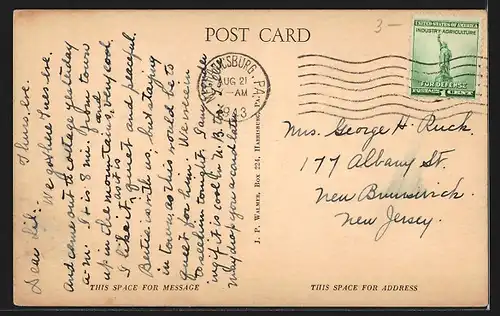 POST CARD
3-
UNITED STATES OF AMERICA
INDUSTRY AGRICULTURE
FOR DEFENSE
1 CENT
BURG, PA.
AUG 21
AM
1943
Thurs. eve.
Dear Lil:
We got here Tues. eve.
and came out to the cottage yesterday
a.m. It is 8 mi. from town
up in the mountains, very cool.
I like it, quiet and peaceful.
Bertie is with us, but staying
in town as this would be too
quiet for him. We were in
to see him tonight. I wonder
if it is cool in N. B. too
May drop you a card later.
J. P. WALMER, BOX 224, HARRISBURG, PA.
Mrs. George H. Ruck.
177 Albany St.
New Brunswick.
New Jersey.
THIS SPACE FOR MESSAGE
THIS SPACE FOR ADDRESS